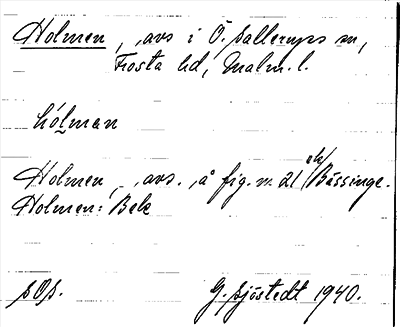 Holmen, avs i Ö. Sallerups sn,
Frosta hd, Malm. l.
hólman
Holmen, avs., å fig. nr 21 Bässinge.
Holmen: Bek
G. Sjöstedt 1940.